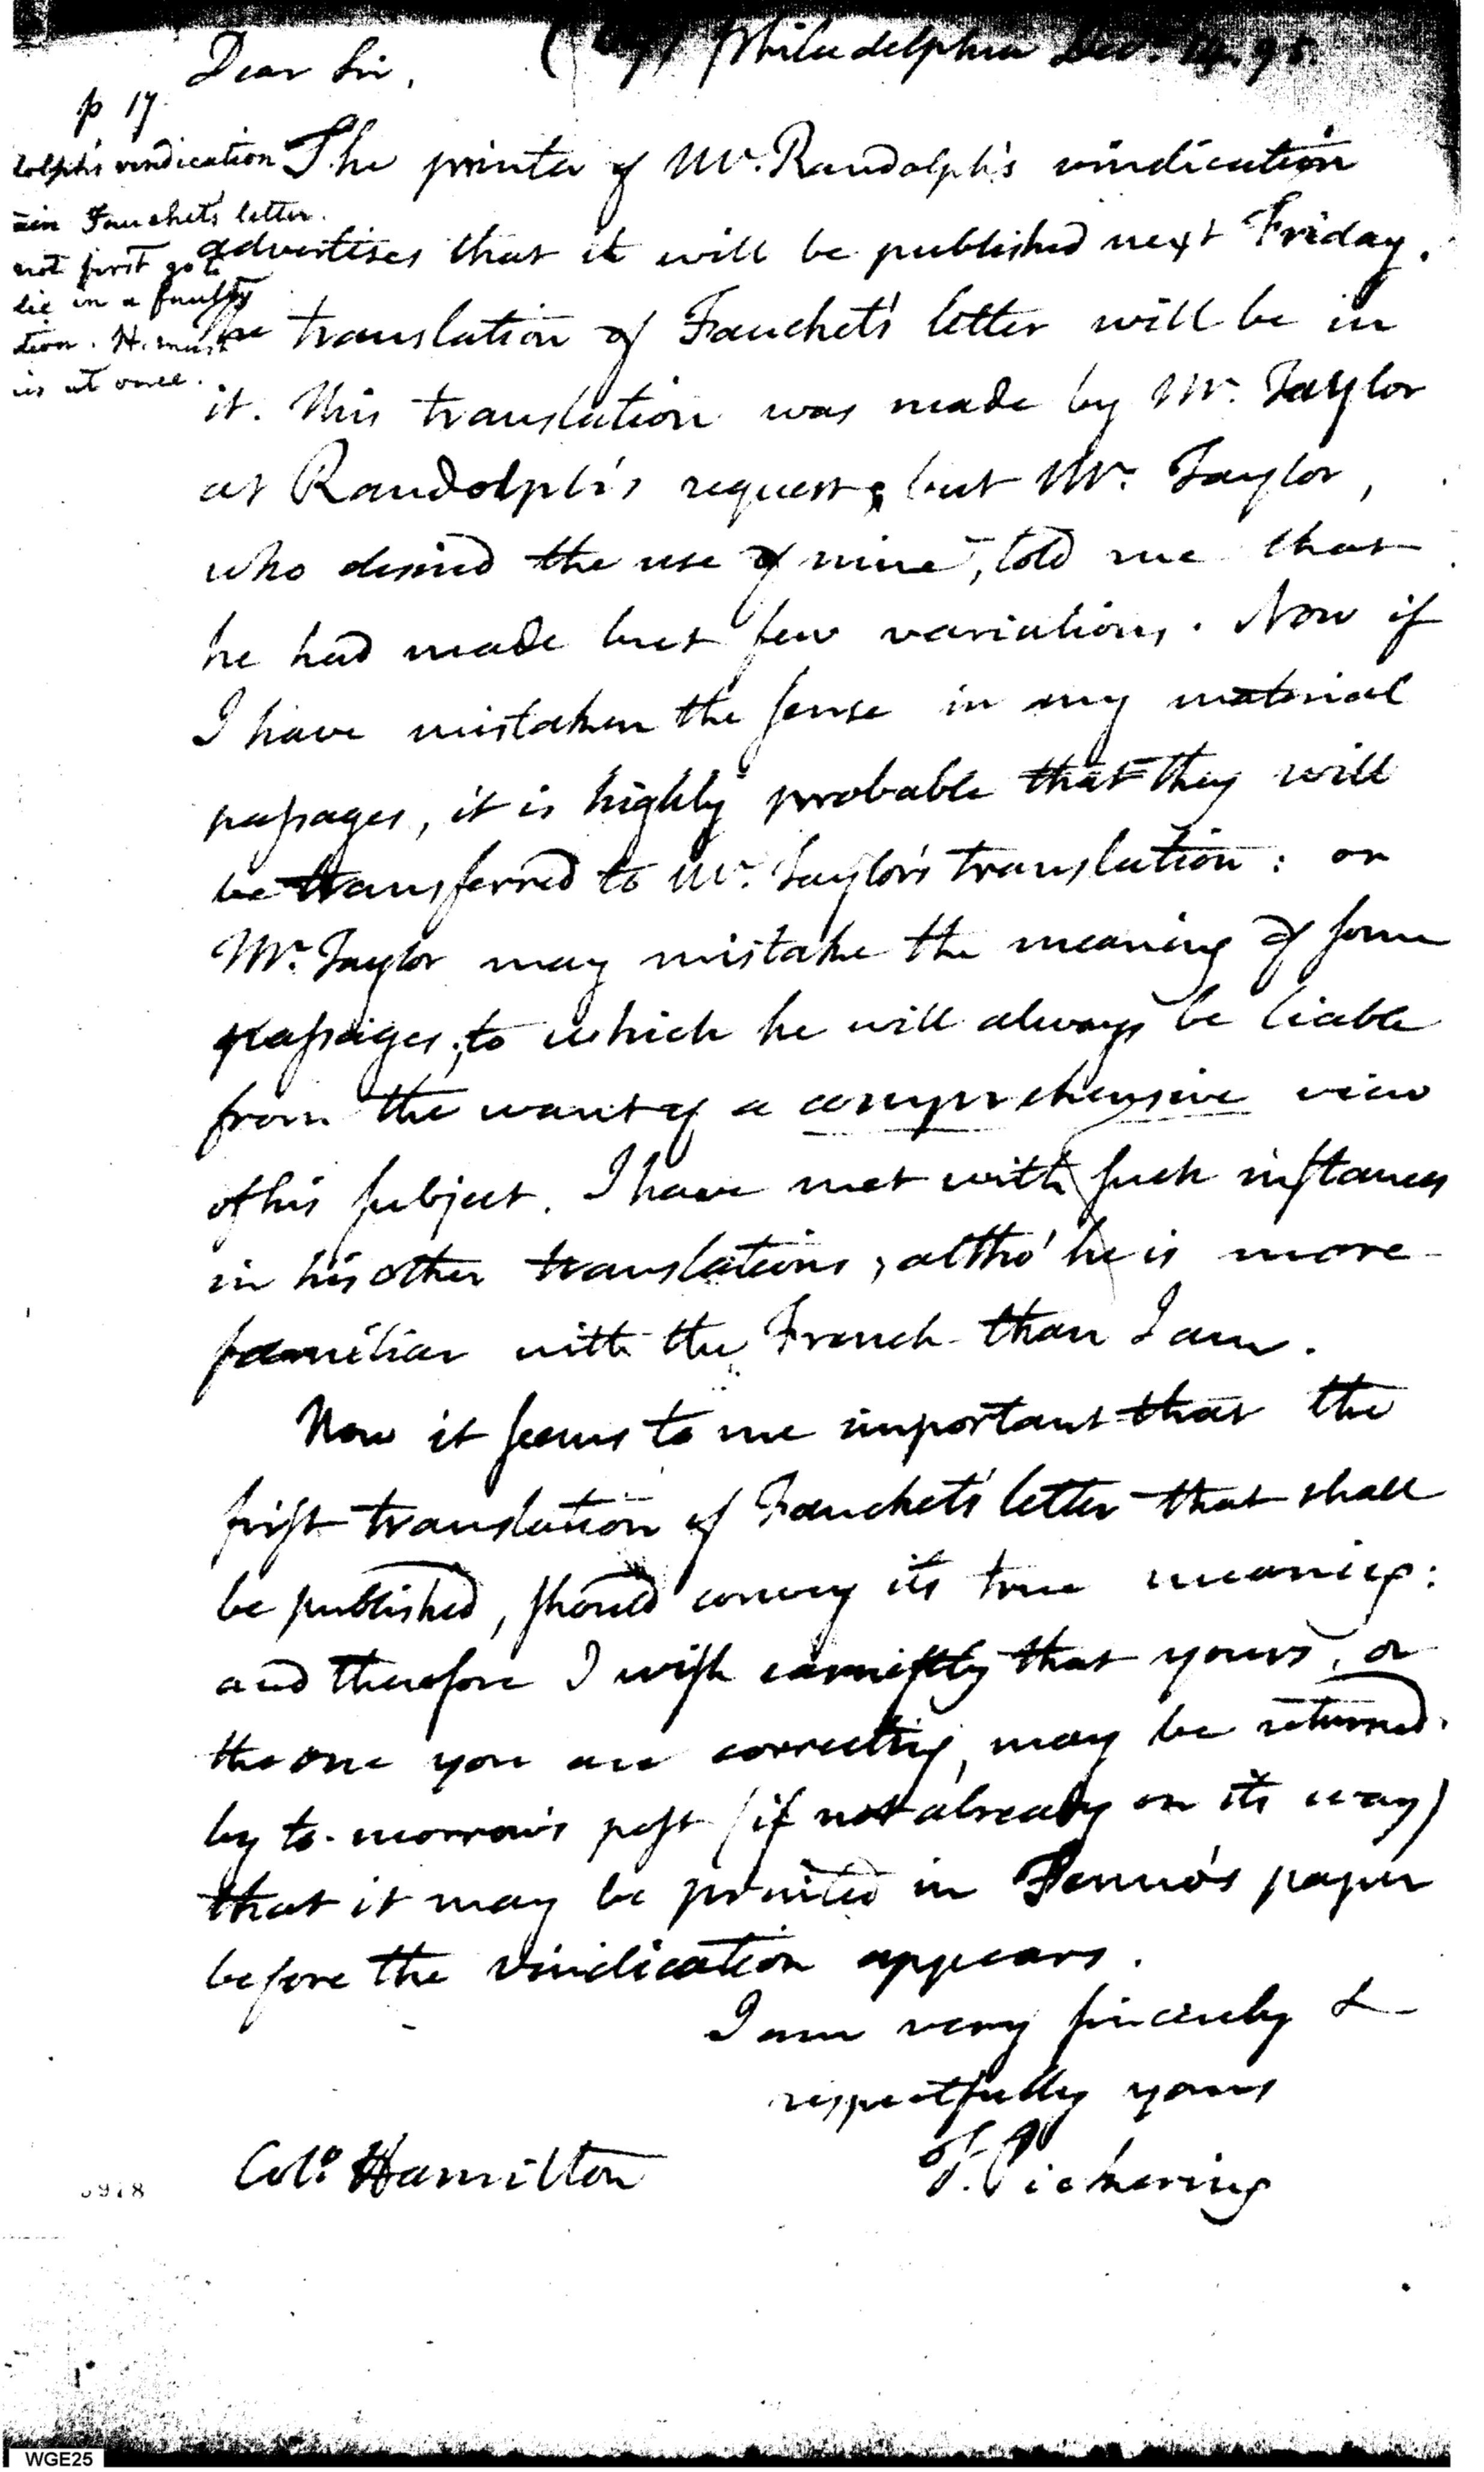 (Copy) Philadelphia Dec. 14. 95.
Dear Sir,
p 17
dolph's vindication
ain Fauchet's letter.
not first go to
lic in a faulty
tion. H. must
is at once.
The printer of Mr. Randolph's vindication
advertises that it will be published next Friday.
The translation of Fauchet's letter will be in
it. This translation was made by Mr. Taylor
at Randolph's request; but Mr. Taylor,
who desired the use of mine, told me that
he had made but few variations. Now if
I have mistaken the sense in any material
passages, it is highly probable that they will
be transferred to Mr. Taylor's translation: or
Mr. Taylor may mistake the meaning of some
passages; to which he will always be liable
from the want of a comprehensive view
of his subject. I have met with such instances
in his other translations, altho' he is more
familiar with the French than I am.
Now it seems to me important that the
first translation of Fauchet's letter that shall
be published, should convey its true meaning:
and therefore I wish earnestly that yours, or
the one you are correcting, may be returned
by to-morrow's post (if not already on its way)
that it may be printed in Fenno's paper
before the vindication appears.
I am very sincerely &
respectfully yours
T. Pickering
Colo. Hamilton
WGE25